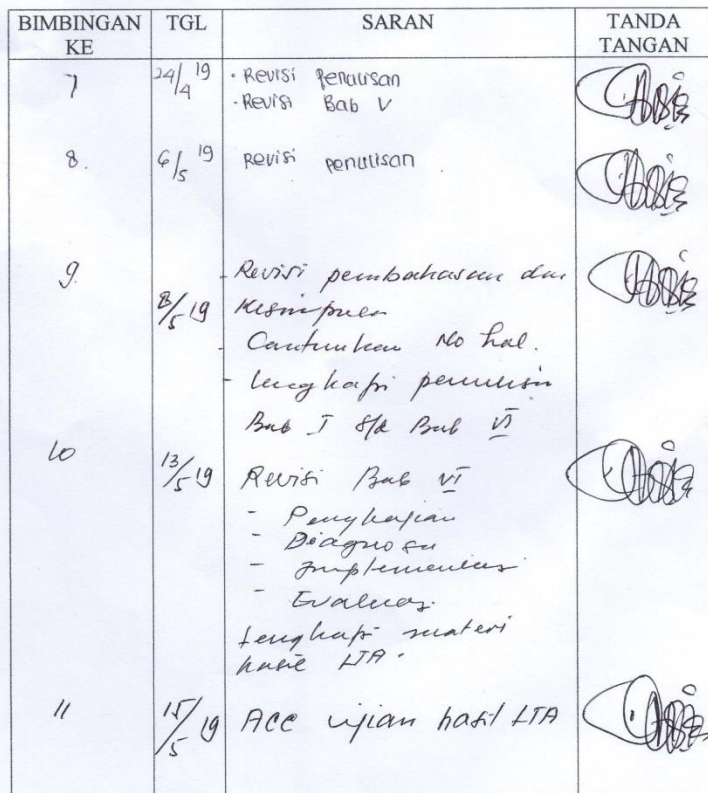 BIMBINGAN KE TGL SARAN TANDA TANGAN
7 24/4 19 • Revisi penulisan
• Revisi Bab V
8. 6/5 19 Revisi penulisan
9. - Revisi pembahasan dan
8/5 19 Kesimpulan
- Cantumkan No hal.
- lengkapi penulisan
Bab I s/d Bab VI
10 13/5 19 Revisi Bab VI
- Pengkajian
- Diagnosa
- Implementasi
- Evaluasi
Lengkapi materi
hasil LTA.
11 15/5 19 ACC ujian hasil LTA